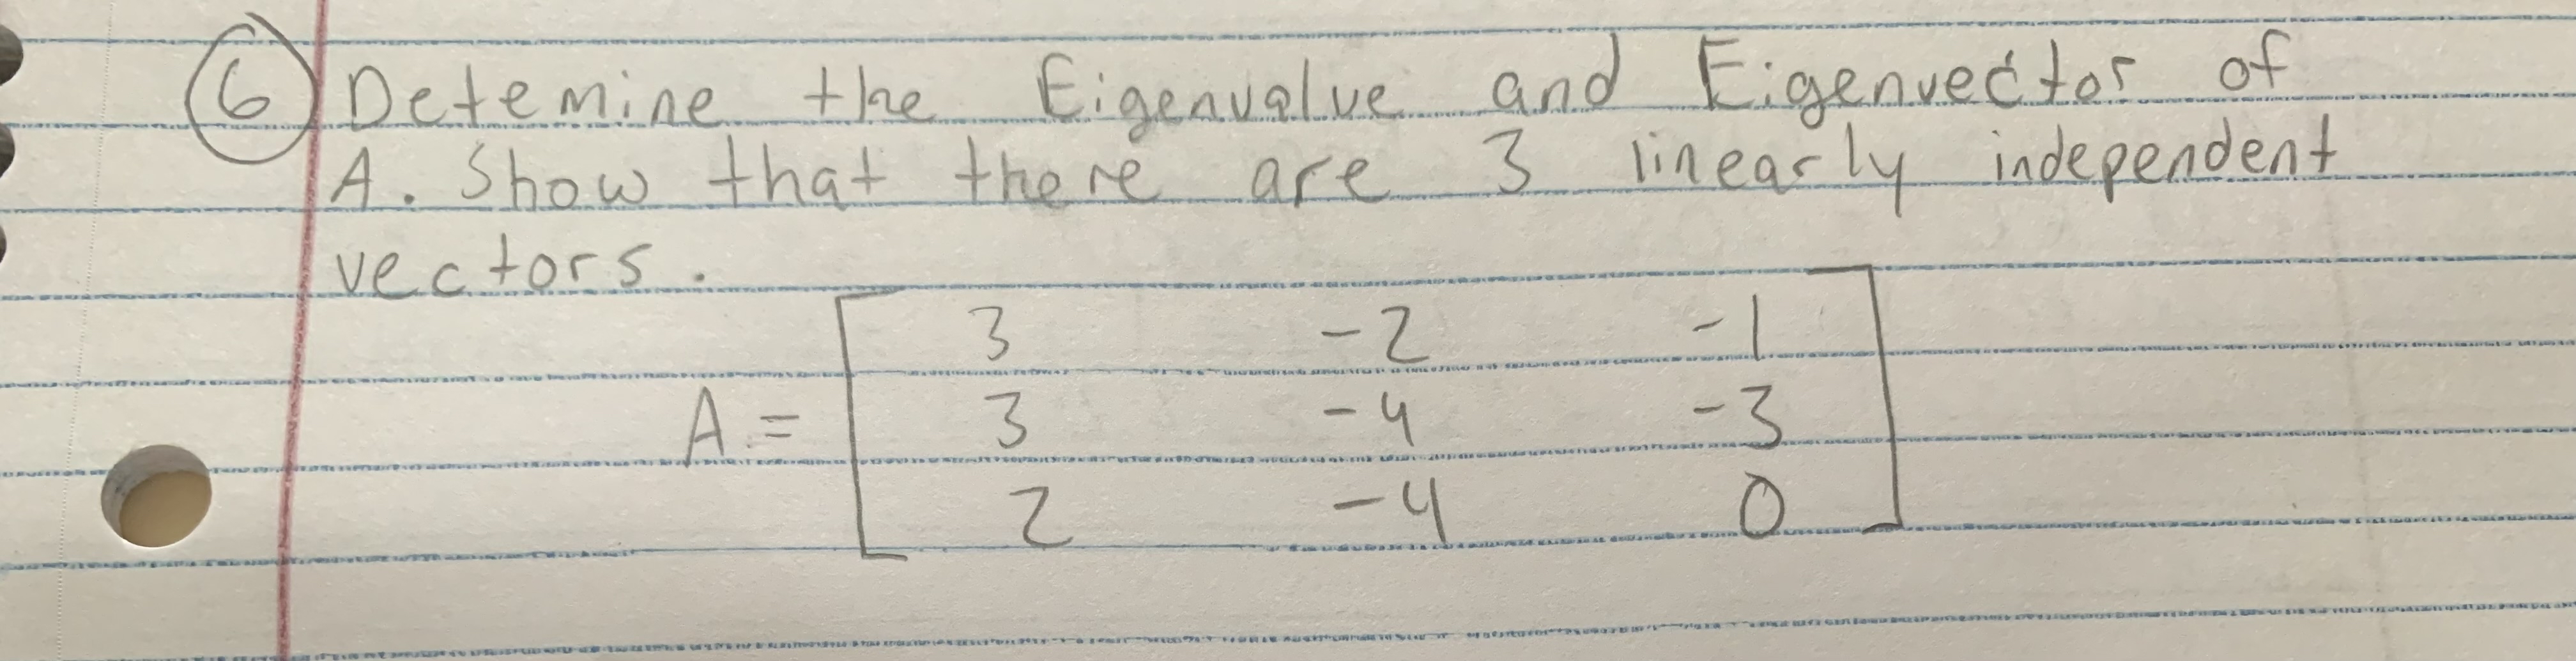 6 Detemine the Eigenvalue and Eigenvector of
A. Show that there are 3 linearly independent
vectors.
3 -2 -1
A = 3 -4 -3
2 -4 0